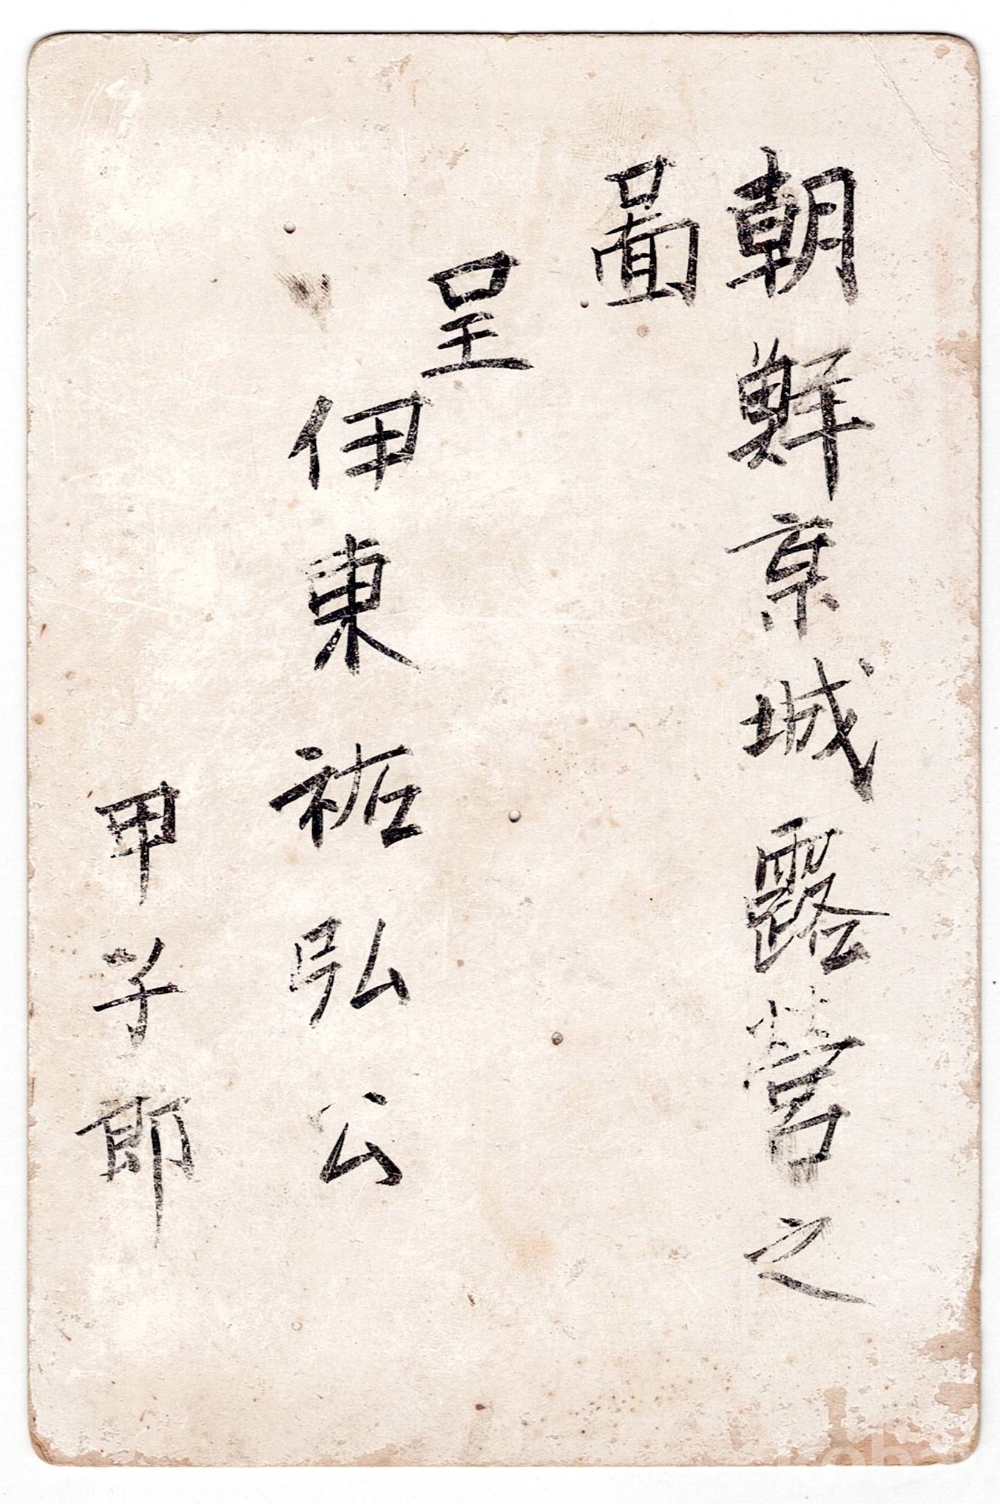 朝鮮京城露営之
啚
呈
伊東祐弘公
甲子郎